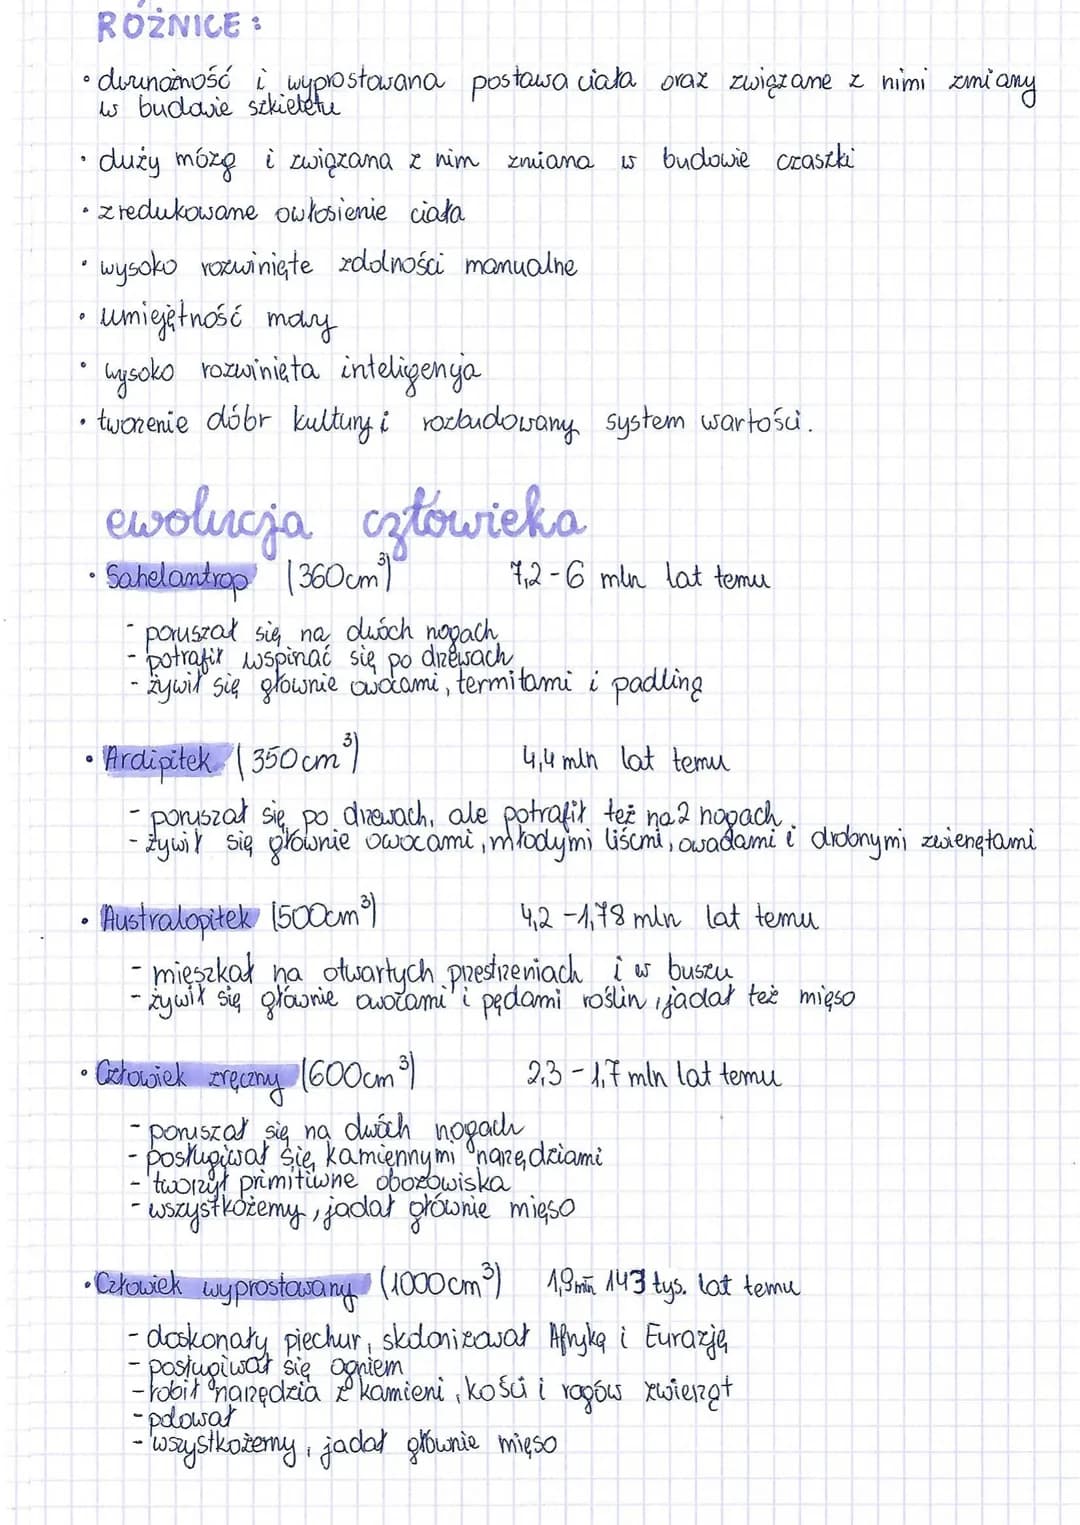 RÓŻNICE:
• dwunożność i wyprostowana postawa ciała oraz związane z nimi zmiany
w budowie szkieletu
• duży mózg i związana z nim zmiana w budowie czaszki
• zredukowane owłosienie ciała
• wysoko rozwinięte zdolności manualne
• umiejętność mowy
• wysoko rozwinięta inteligencja
• tworzenie dóbr kultury i rozbudowany system wartości.
ewolucja człowieka
• Sahelantrop (360cm³) 7,2-6 mln lat temu
- poruszał się na dwóch nogach
- potrafił wspinać się po drzewach
- żywił się głownie owocami, termitami i padliną
• Ardipitek (350cm³) 4,4 mln lat temu
- poruszał się po drzewach, ale potrafił też na 2 nogach
- żywił się głównie owocami, młodymi liśćmi, owadami i drobnymi zwierzętami
• Australopitek (500cm³) 4,2-1,78 mln lat temu
- mieszkał na otwartych przestrzeniach i w buszu
- żywił się głównie owocami i pędami roślin, jadał też mięso
• Człowiek zręczny (600cm³) 2,3-1,7 mln lat temu
- poruszał się na dwóch nogach
- posługiwał się kamiennymi narzędziami
- tworzył primitiwne obozowiska
- wszystkożerny, jadał głównie mięso
• Człowiek wyprostowany (1000cm³) 1,9mln 143 tys. lat temu
- doskonały piechur, skolonizował Afrykę i Eurazję
- posługiwał się ogniem
- robił narzędzia z kamieni, kości i rogów zwierząt
- polował
- wszystkożerny, jadał głównie mięso